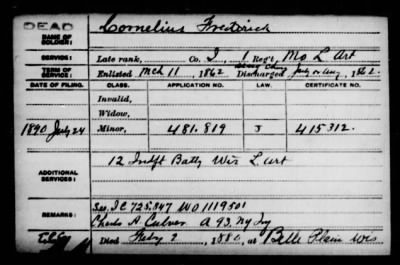 DEAD
Cornelius Frederick
NAME OF SOLDIER:
SERVICE: Late rank, Co. I, 1 Reg't, Mo L Art
TERM OF SERVICE: Enlisted Mch 11, 1862 Discharged July or Aug, 1862.
DATE OF FILING. CLASS. APPLICATION NO. LAW. CERTIFICATE NO.
Invalid,
Widow,
1890 July 24 Minor, 481.819 J 415312.
ADDITIONAL SERVICES: 12 Indpt Batty Wis L. Art
REMARKS: See, I C 725.847 W O 1119501
Charles A Culver A 93. Ny Inf
Died Feby 2, 1880, at Belle Plain Wis